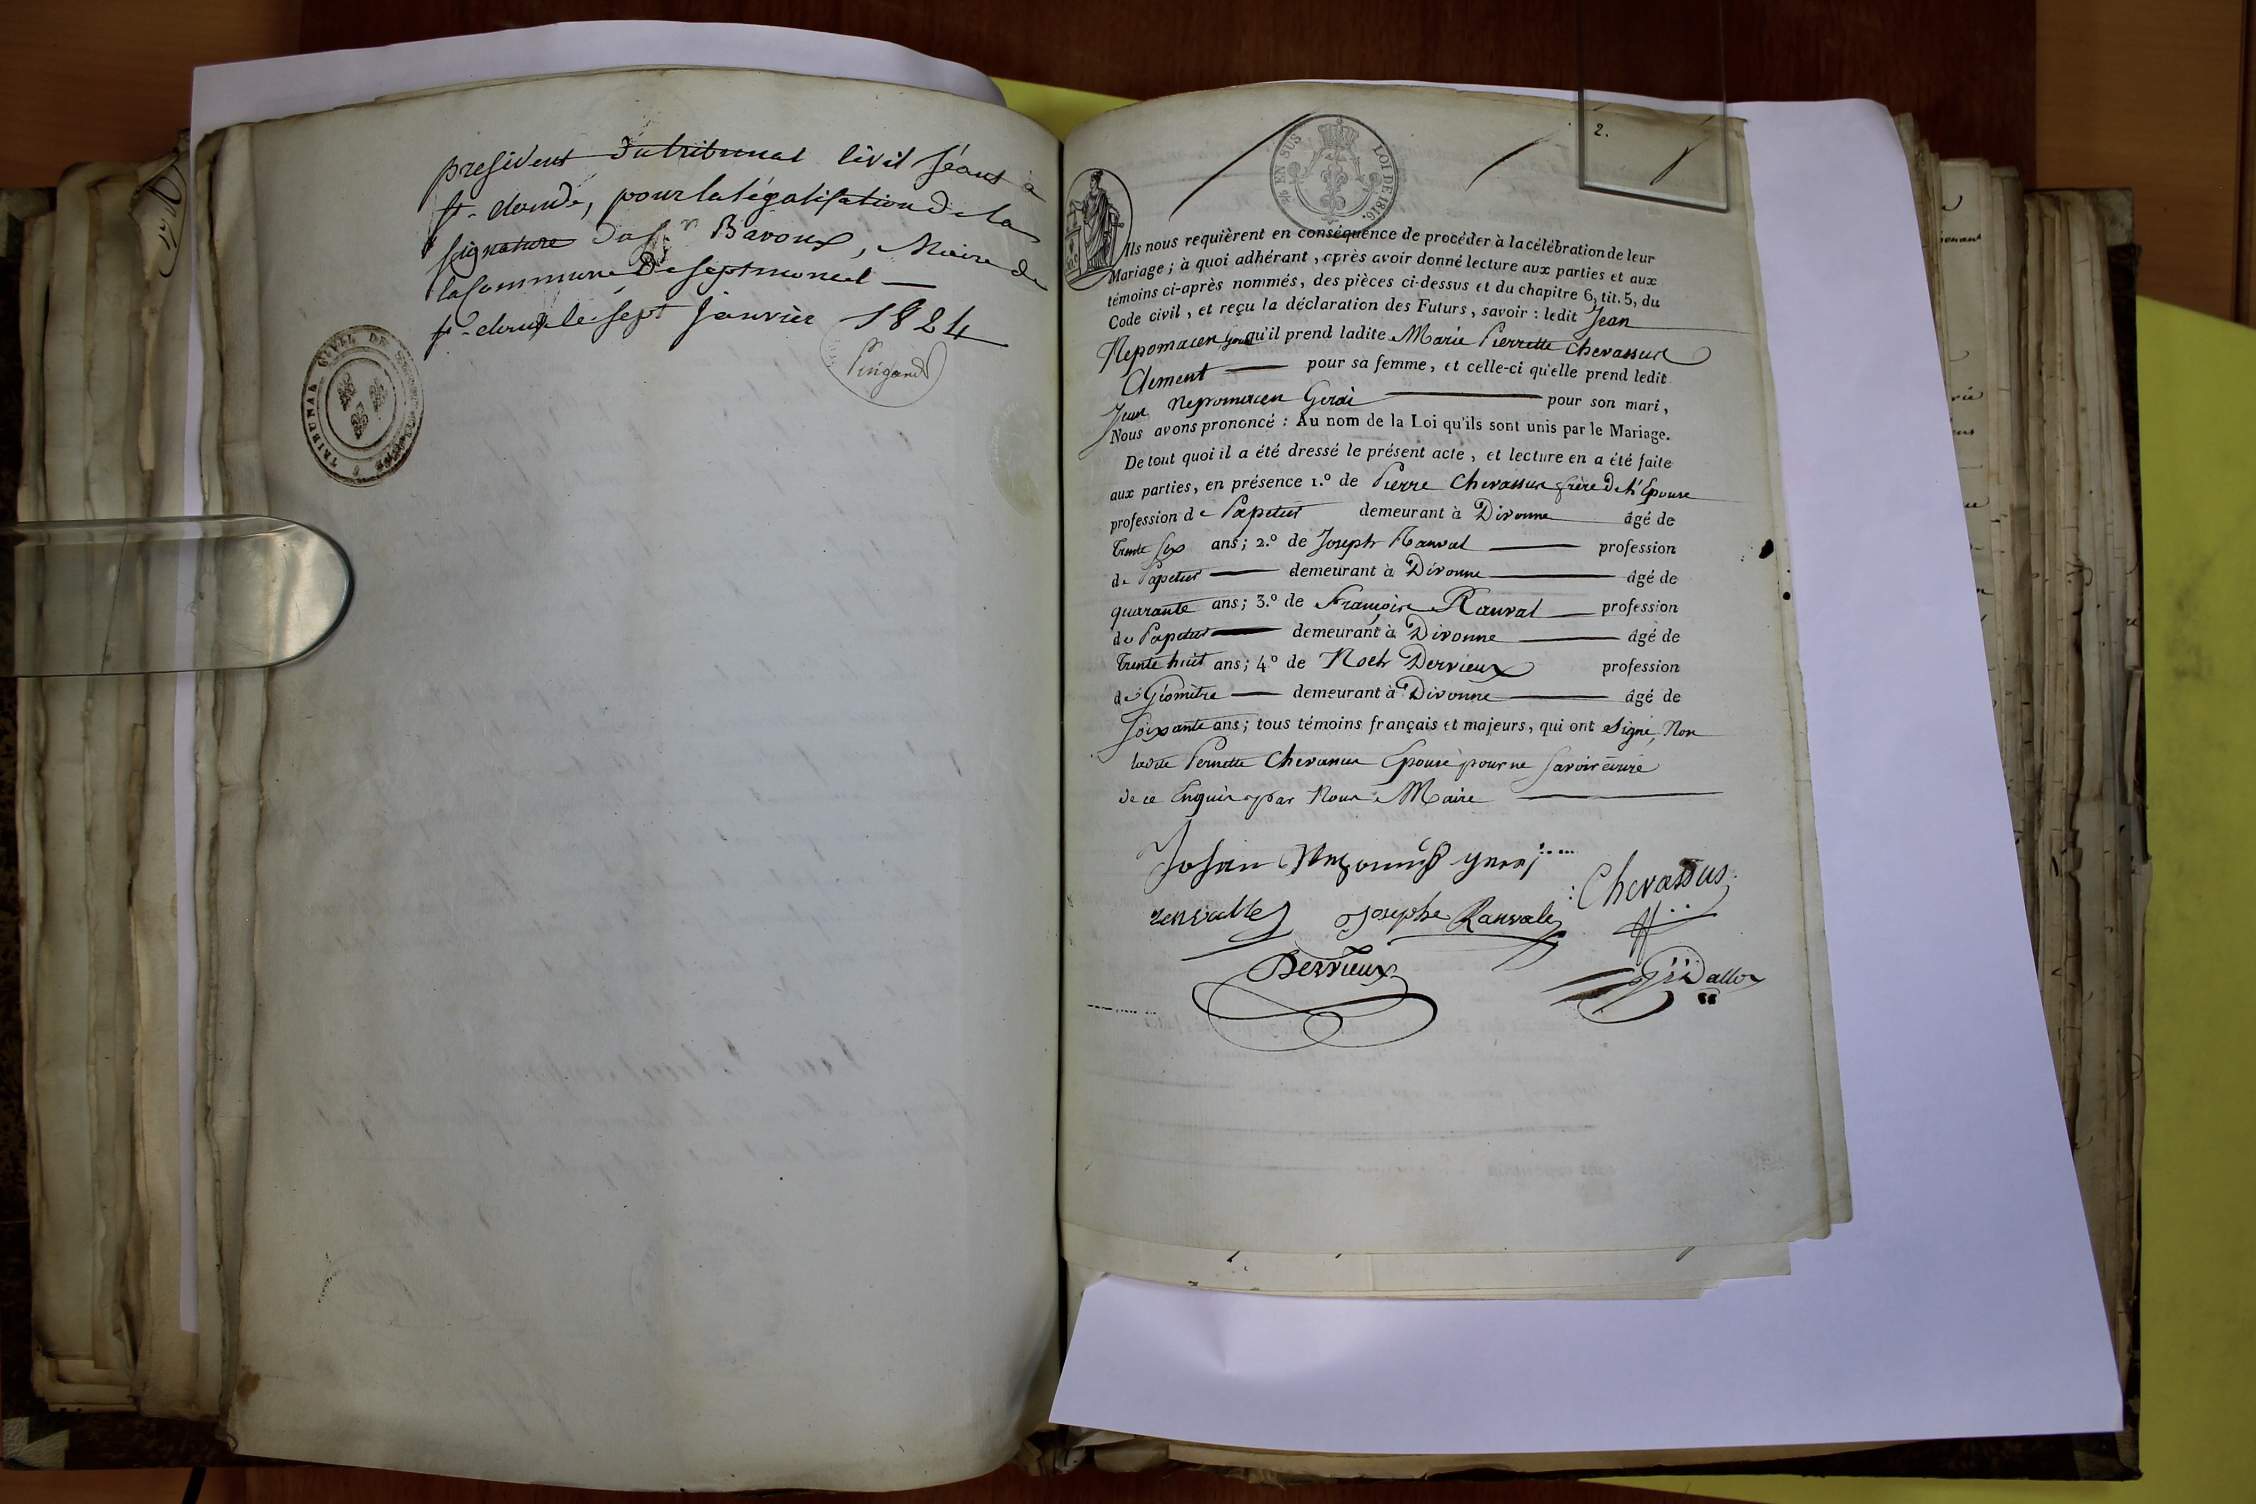 president du tribunal civil séant à
st. claude, pour la légalisation de la
signature du sr Bavoux, Maire de
la Commune de septmoncel
st. claude le sept janvier 1824
Pingand
TRIBUNAL CIVIL DE
2.
EN SUS
LOI DE 1816.
Ils nous requièrent en conséquence de procéder à la célébration de leur
Mariage ; à quoi adhérant , après avoir donné lecture aux parties et aux
témoins ci-après nommés, des pièces ci-dessus et du chapitre 6, tit. 5, du
Code civil , et reçu la déclaration des Futurs , savoir : ledit Jean
Nepomucen qu'il prend ladite Marie Pierrette Chevassus
Clement pour sa femme , et celle-ci qu'elle prend ledit
Jean Nepomucen Gerai pour son mari ,
Nous avons prononcé : Au nom de la Loi qu'ils sont unis par le Mariage.
De tout quoi il a été dressé le présent acte , et lecture en a été faite
aux parties, en présence 1.º de Pierre Chevassus frère de l'Epouse
profession de Papetier demeurant à Divonne âgé de
trente six ans ; 2.º de Joseph Ranval profession
de Papetier demeurant à Divonne âgé de
quarante ans ; 3.º de François Ranval profession
de Papetier demeurant à Divonne âgé de
trente huit ans ; 4º de Noël Dervieux profession
de Géomètre demeurant à Divonne âgé de
soixante ans ; tous témoins français et majeurs, qui ont signé, Non
ladite Pernette Chevassus Epouse pour ne savoir écrire
de ce Enquis par Nous Maire
Johan
Chevassus
Josephe Ranvale
Dervieux